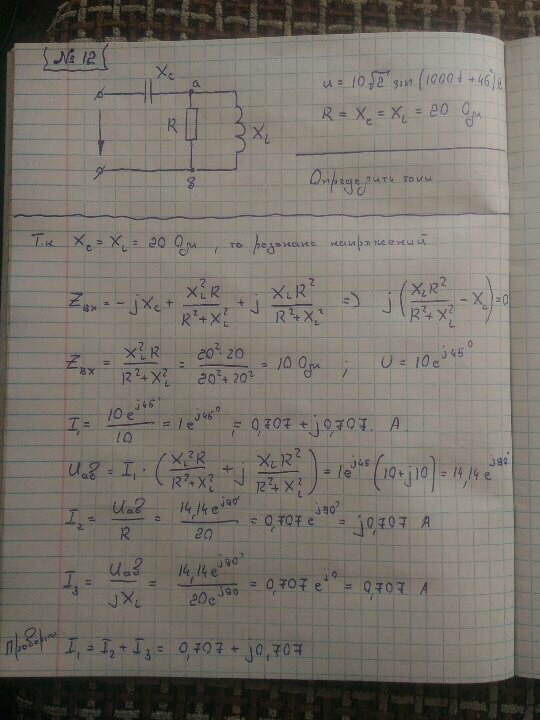 № 12
Xc
a
R
XL
в
u = 10√2 sin(1000t + 45°) В
R = Xc = XL = 20 Ом
Определить токи
Т.к Xc = XL = 20 Ом, то резонанс напряжений
Zвх = -jXc + XL²R/(R²+XL²) + j XLR²/(R²+XL²) => j(XLR²/(R²+XL²) - Xc) = 0
Zвх = XL²R/(R²+XL²) = 20²·20/(20²+20²) = 10 Ом, U = 10e^j45°
I₁ = 10e^j45°/10 = 1e^j45° = 0,707 + j0,707. А.
Uав = I₁·(XL²R/(R²+XL²) + j XLR²/(R²+XL²)) = 1e^j45(10+j10) = 14,14e^j90°
I₂ = Uав/R = 14,14e^j90°/20 = 0,707e^j90° = j0,707 А
I₃ = Uав/jXL = 14,14e^j90°/20e^j90 = 0,707e^j0 = 0,707 А
I₁ = I₂ + I₃ = 0,707 + j0,707